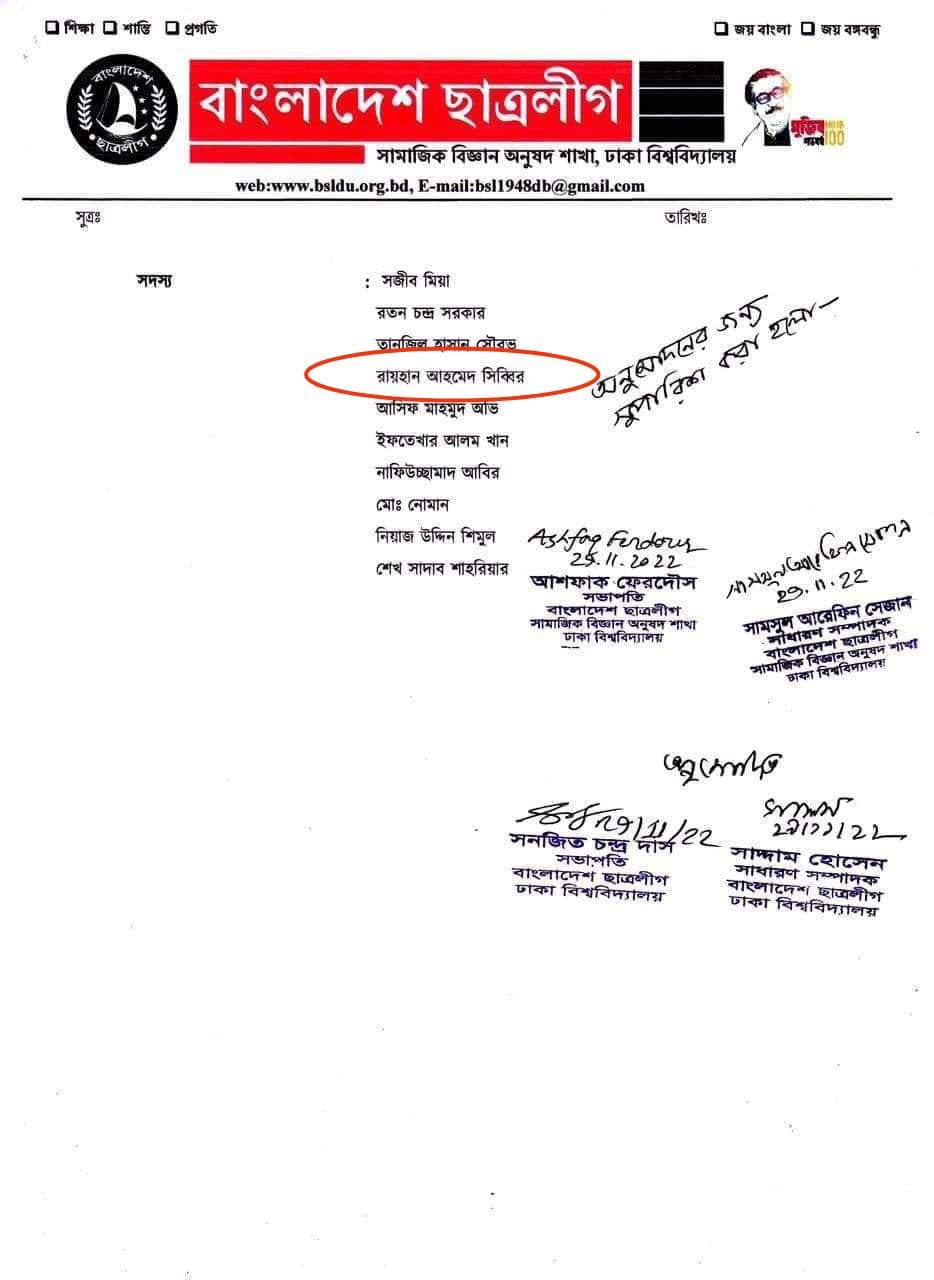 ❑ শিক্ষা ❑ শান্তি ❑ প্রগতি
❑ জয় বাংলা ❑ জয় বঙ্গবন্ধু
বাংলাদেশ
ছাত্রলীগ
বাংলাদেশ ছাত্রলীগ
মুজিব
100
সামাজিক বিজ্ঞান অনুষদ শাখা, ঢাকা বিশ্ববিদ্যালয়
web:www.bsldu.org.bd, E-mail:bsl1948db@gmail.com
সুত্রঃ
তারিখঃ
সদস্য : সজীব মিয়া
রতন চন্দ্র সরকার
তানজিল হাসান সৌরভ
রায়হান আহমেদ সিব্বির
আসিফ মাহমুদ অভি
ইফতেখার আলম খান
নাফিউচ্ছামাদ আবির
মোঃ নোমান
নিয়াজ উদ্দিন শিমুল
শেখ সাদাব শাহরিয়ার
অনুমোদনের জন্য
সুপারিশ করা হলো-
Ashfaq Ferdous
29.11.2022
আশফাক ফেরদৌস
সভাপতি
বাংলাদেশ ছাত্রলীগ
সামাজিক বিজ্ঞান অনুষদ শাখা
ঢাকা বিশ্ববিদ্যালয়
29.11.22
সামসুল আরেফিন সেজান
সাধারণ সম্পাদক
বাংলাদেশ ছাত্রলীগ
সামাজিক বিজ্ঞান অনুষদ শাখা
ঢাকা বিশ্ববিদ্যালয়
অনুমোদিত
29/11/22
সনজিত চন্দ্র দাস
সভাপতি
বাংলাদেশ ছাত্রলীগ
ঢাকা বিশ্ববিদ্যালয়
সাদ্দাম
২৯/১১/২২
সাদ্দাম হোসেন
সাধারণ সম্পাদক
বাংলাদেশ ছাত্রলীগ
ঢাকা বিশ্ববিদ্যালয়